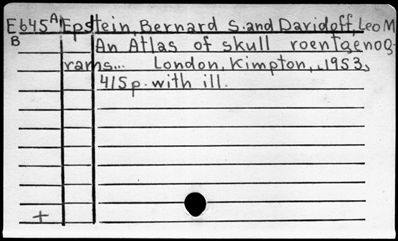 E645 A Epstein, Bernard S. and Davidoff, Leo M
B An Atlas of skull roentgenog-
rams... London, Kimpton, 1953,
415 p. with ill.
+